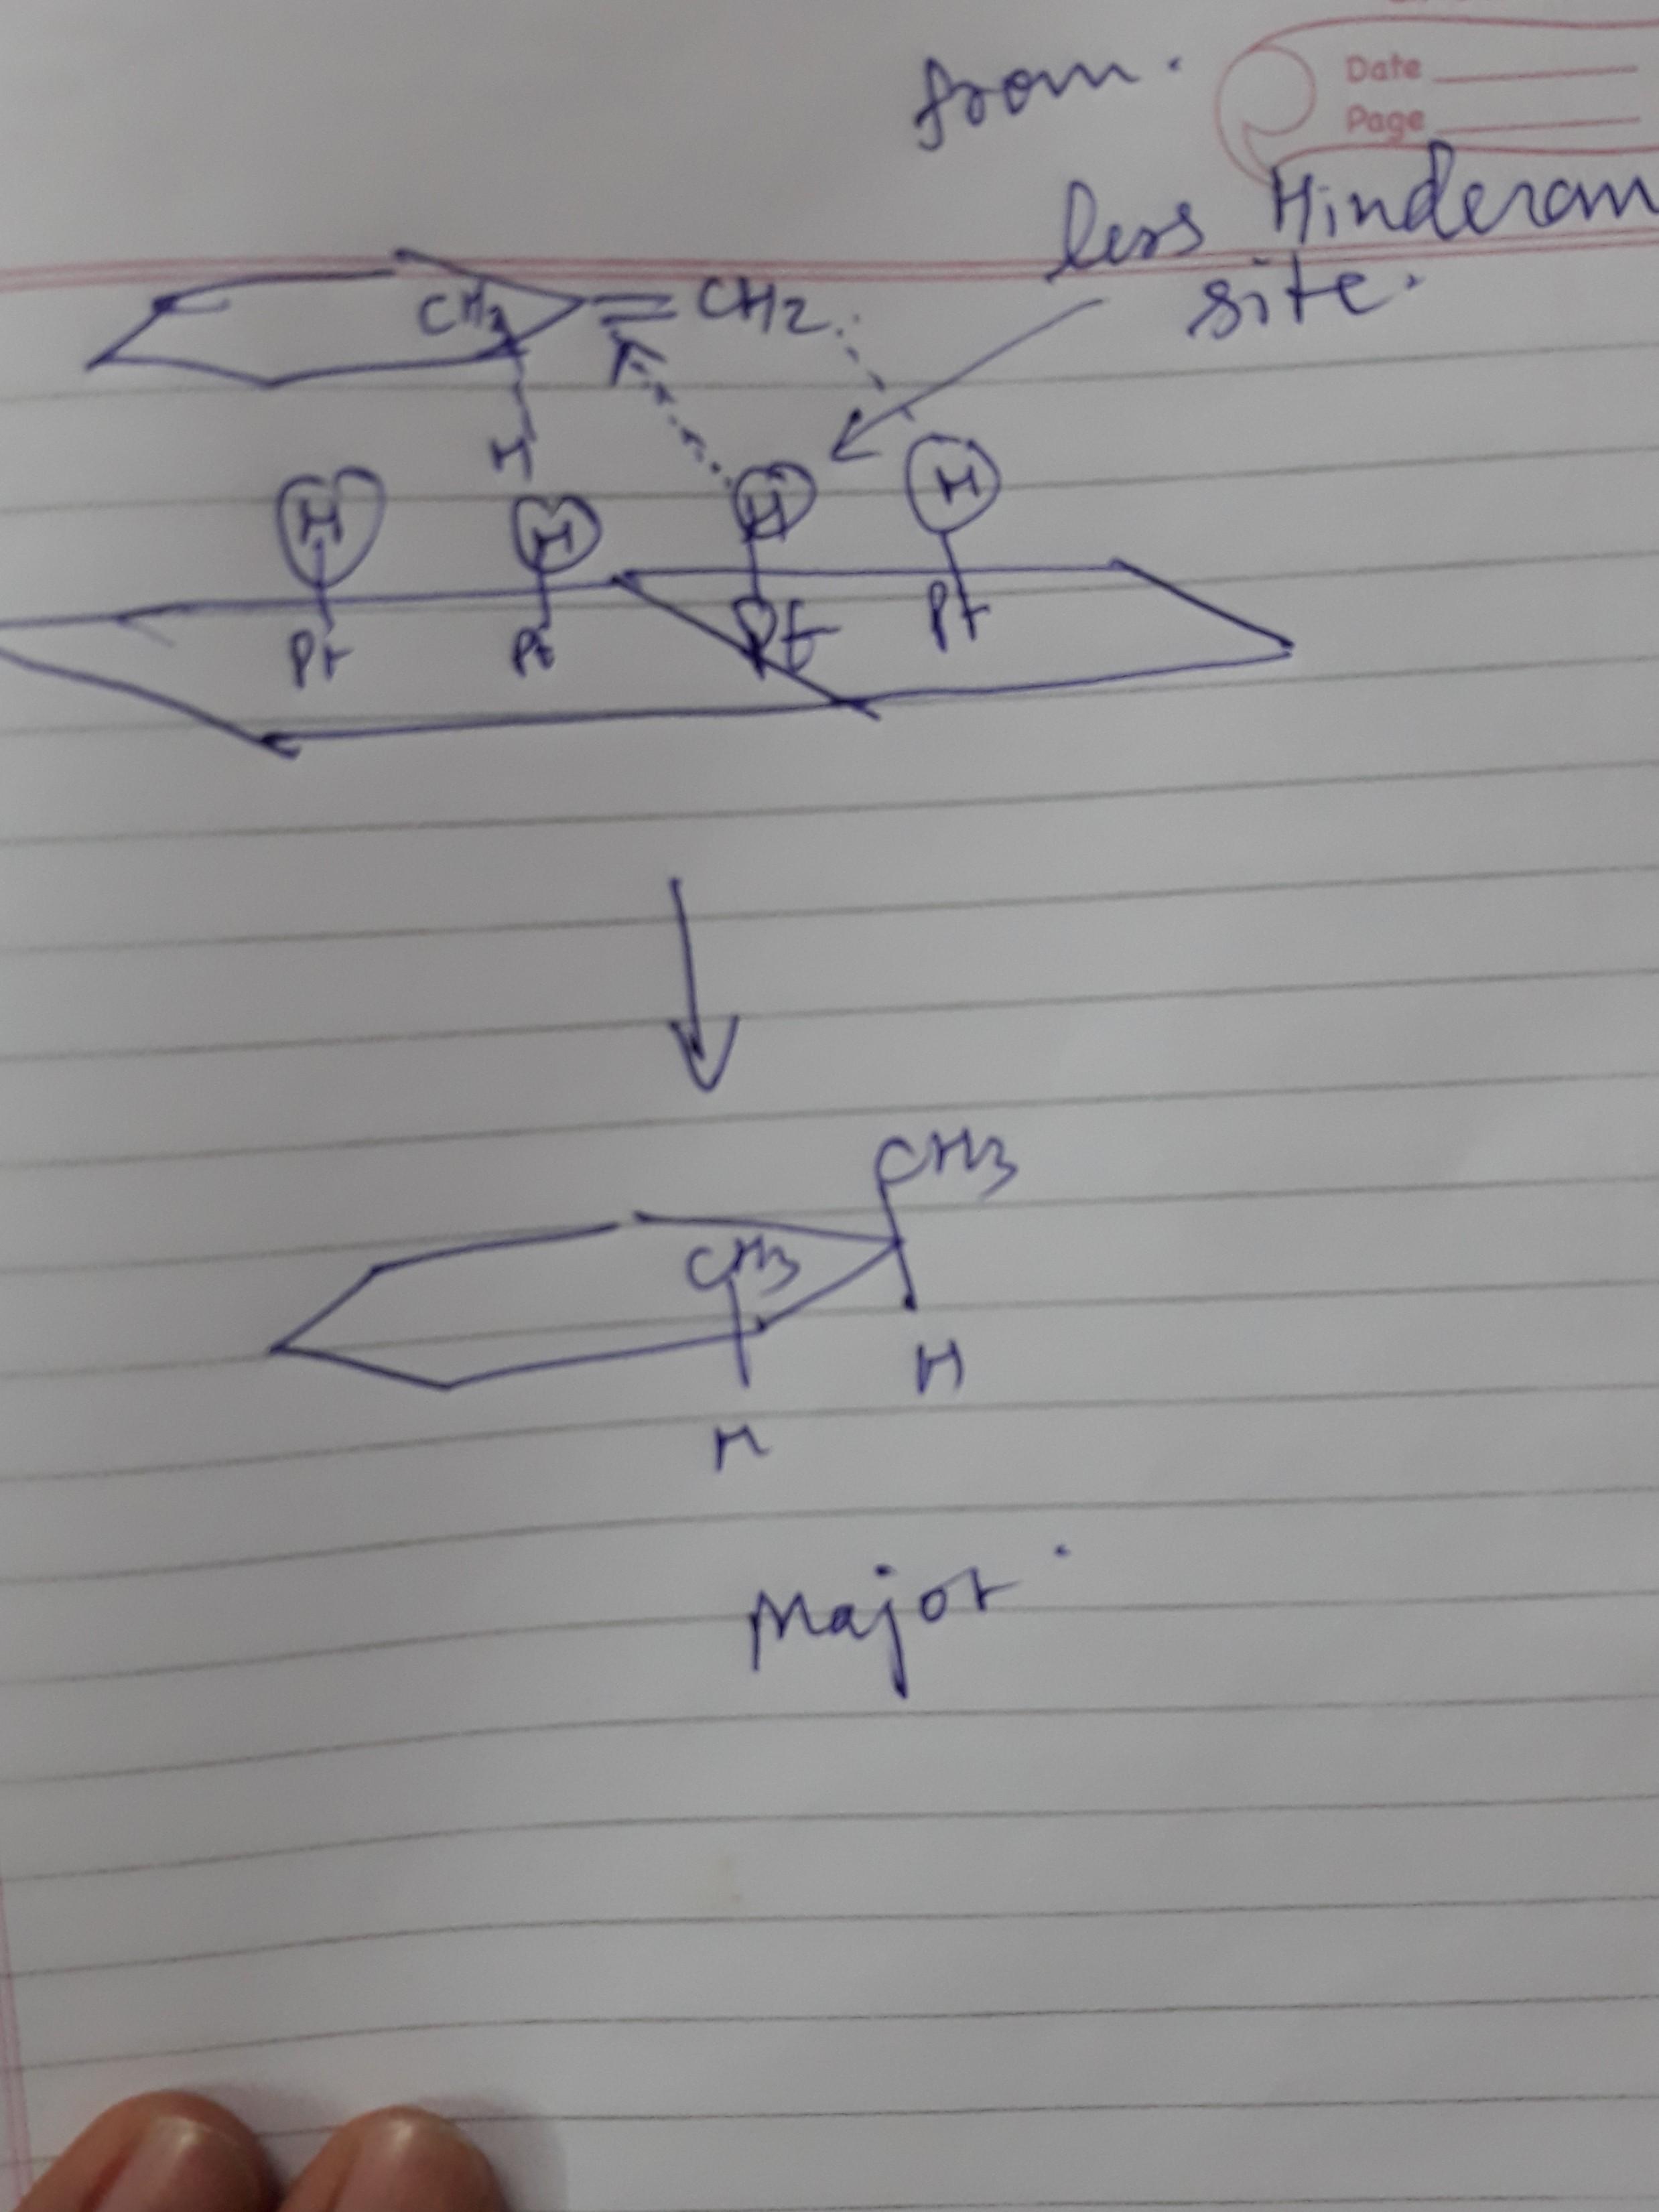 from.
Date
Page
less Hinderam
site.
CH3
=CH2
H
H H H H
Pt Pt Pt Pt
CH3
CH3
H
H
Major